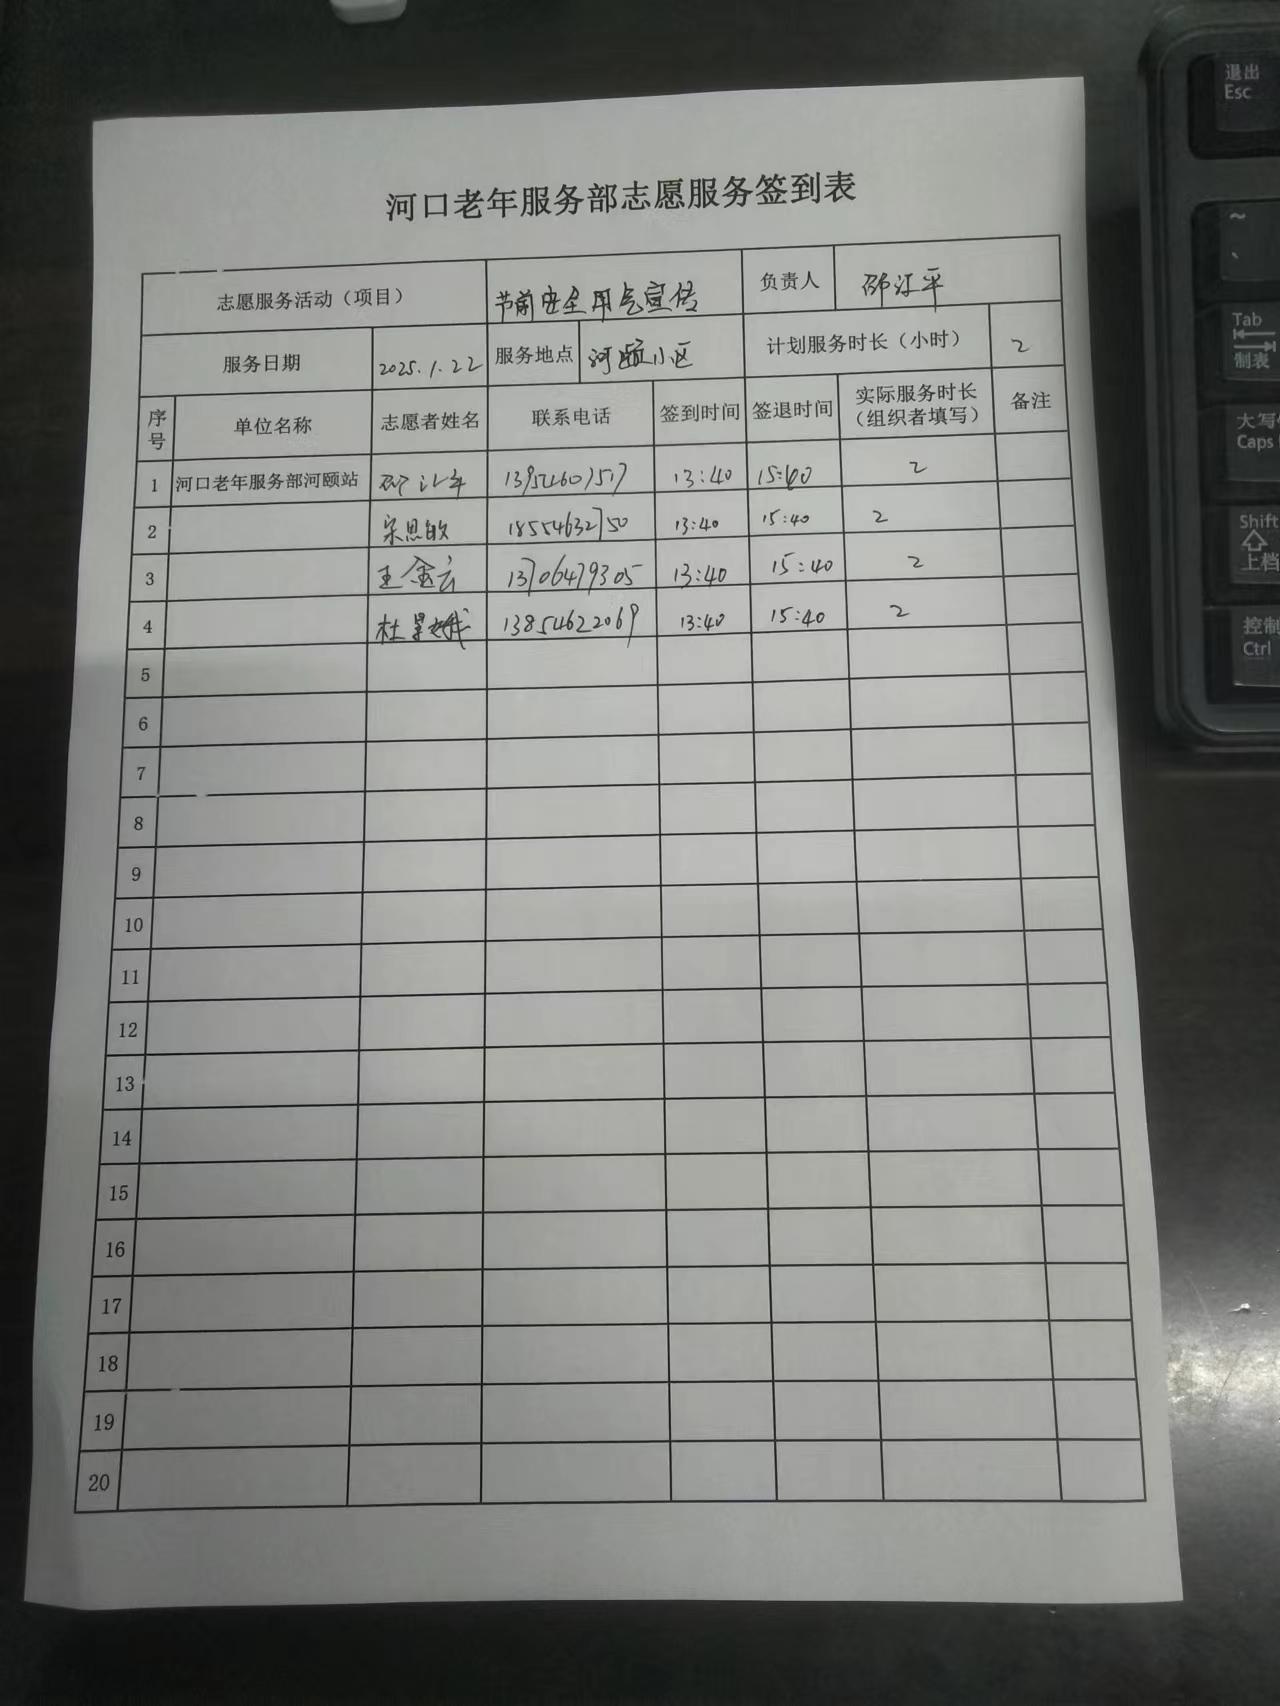 河口老年服务部志愿服务签到表
志愿服务活动（项目） 节前安全用气宣传 负责人 邵江平
服务日期 2025.1.22 服务地点 河颐小区 计划服务时长（小时） 2
序号 单位名称 志愿者姓名 联系电话 签到时间 签退时间 实际服务时长（组织者填写） 备注
1 河口老年服务部河颐站 邵江平 13954607517 13:40 15:40 2
2 宋思敏 18554632750 13:40 15:40 2
3 王金云 13706479305 13:40 15:40 2
4 杜景娥 13854622069 13:40 15:40 2
5
6
7
8
9
10
11
12
13
14
15
16
17
18
19
20
退出
Esc
~
、
Tab
制表
大写
Caps
Shift
上档
控制
Ctrl